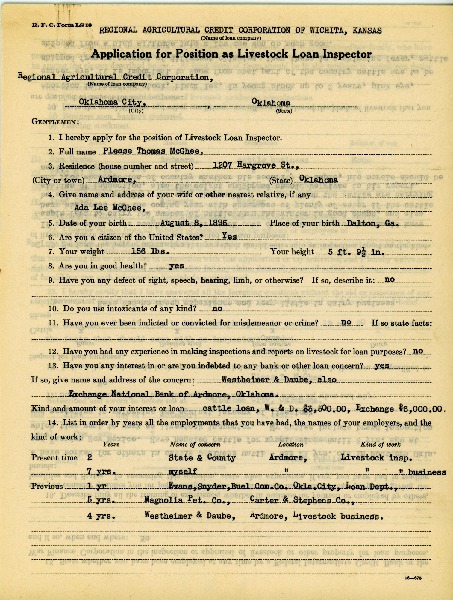 REGIONAL AGRICULTURAL CREDIT CORPORATION OF WICHITA, KANSAS
(Name of loan company)
Application for Position as Livestock Loan Inspector
Regional Agricultural Credit Corporation,
(Name of loan company)
Oklahoma City, Oklahoma
(City) (State)
GENTLEMEN:
1. I hereby apply for the position of Livestock Loan Inspector.
2. Full name Please Thomas McGhee.
3. Residence (house number and street) 1207 Hargrove St.,
(City or town) Ardmore, (State) Oklahoma
4. Give name and address of your wife or other nearest relative, if any
Ada Lee McGhee,
5. Date of your birth August 8, 1895 Place of your birth Dalton, Ga.
6. Are you a citizen of the United States? Yes
7. Your weight 156 lbs. Your height 5 ft. 9½ in.
8. Are you in good health? yes
9. Have you any defect of sight, speech, hearing, limb, or otherwise? If so, describe it: no
10. Do you use intoxicants of any kind? no
11. Have you ever been indicted or convicted for misdemeanor or crime? no If so state facts:
12. Have you had any experience in making inspections and reports on livestock for loan purposes? no
13. Have you any interest in or are you indebted to any bank or other loan concern? yes
If so, give name and address of the concern: Westheimer & Daube, also
Exchange National Bank of Ardmore, Oklahoma.
Kind and amount of your interest or loan cattle loan, W. & D. $3,500.00, Exchange $5,000.00.
14. List in order by years all the employments that you have had, the names of your employers, and the
kind of work:
Years Name of concern Location Kind of work
Present time 2 State & County Ardmore, Livestock insp.
7 yrs. myself " " " business
Previous 1 yr Evans,Snyder,Buel Com.Co. Okla.City, Loan Dept.,
5 yrs. Magnolia Pet. Co., Carter & Stephens Co.,
4 yrs. Westheimer & Daube, Ardmore, Livestock business.